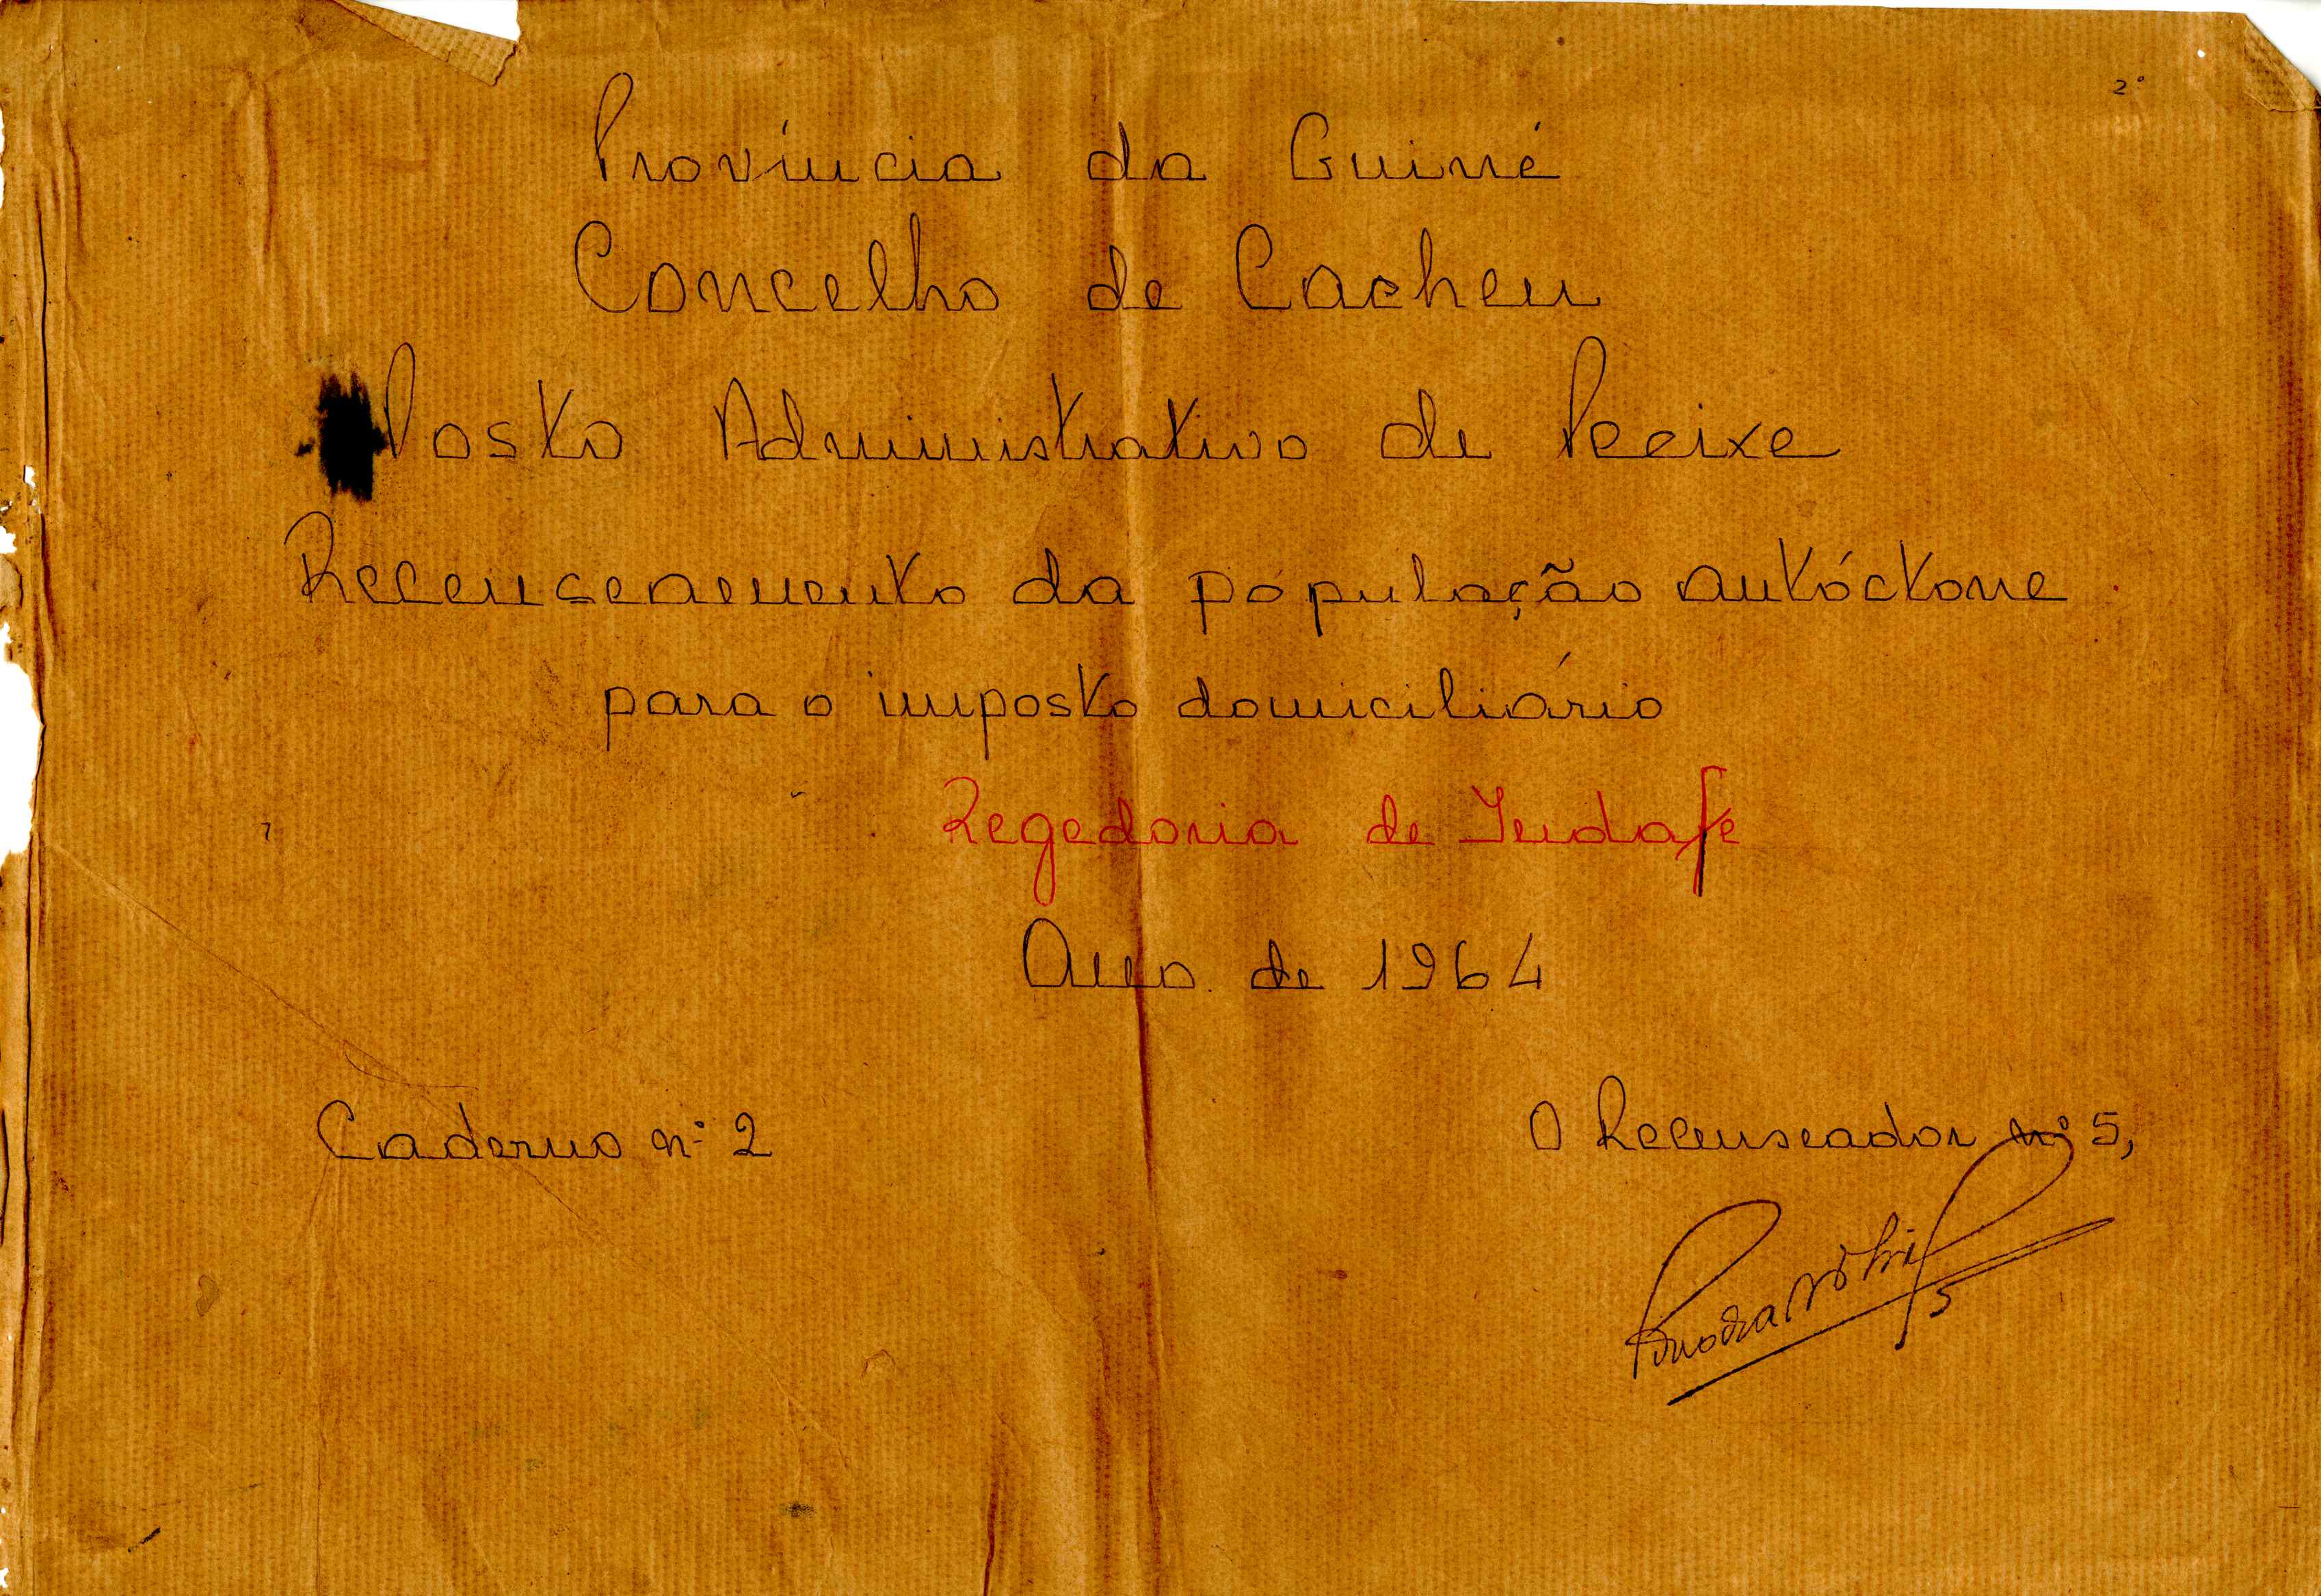 2º
Província da Guiné
Concelho de Cacheu
Posto Administrativo de Pecixe
Recenseamento da população autóctone
para o imposto domiciliário
Regedoria de Indafe
Ano de 1964
Caderno nº 2
O Recenseador nº 5,